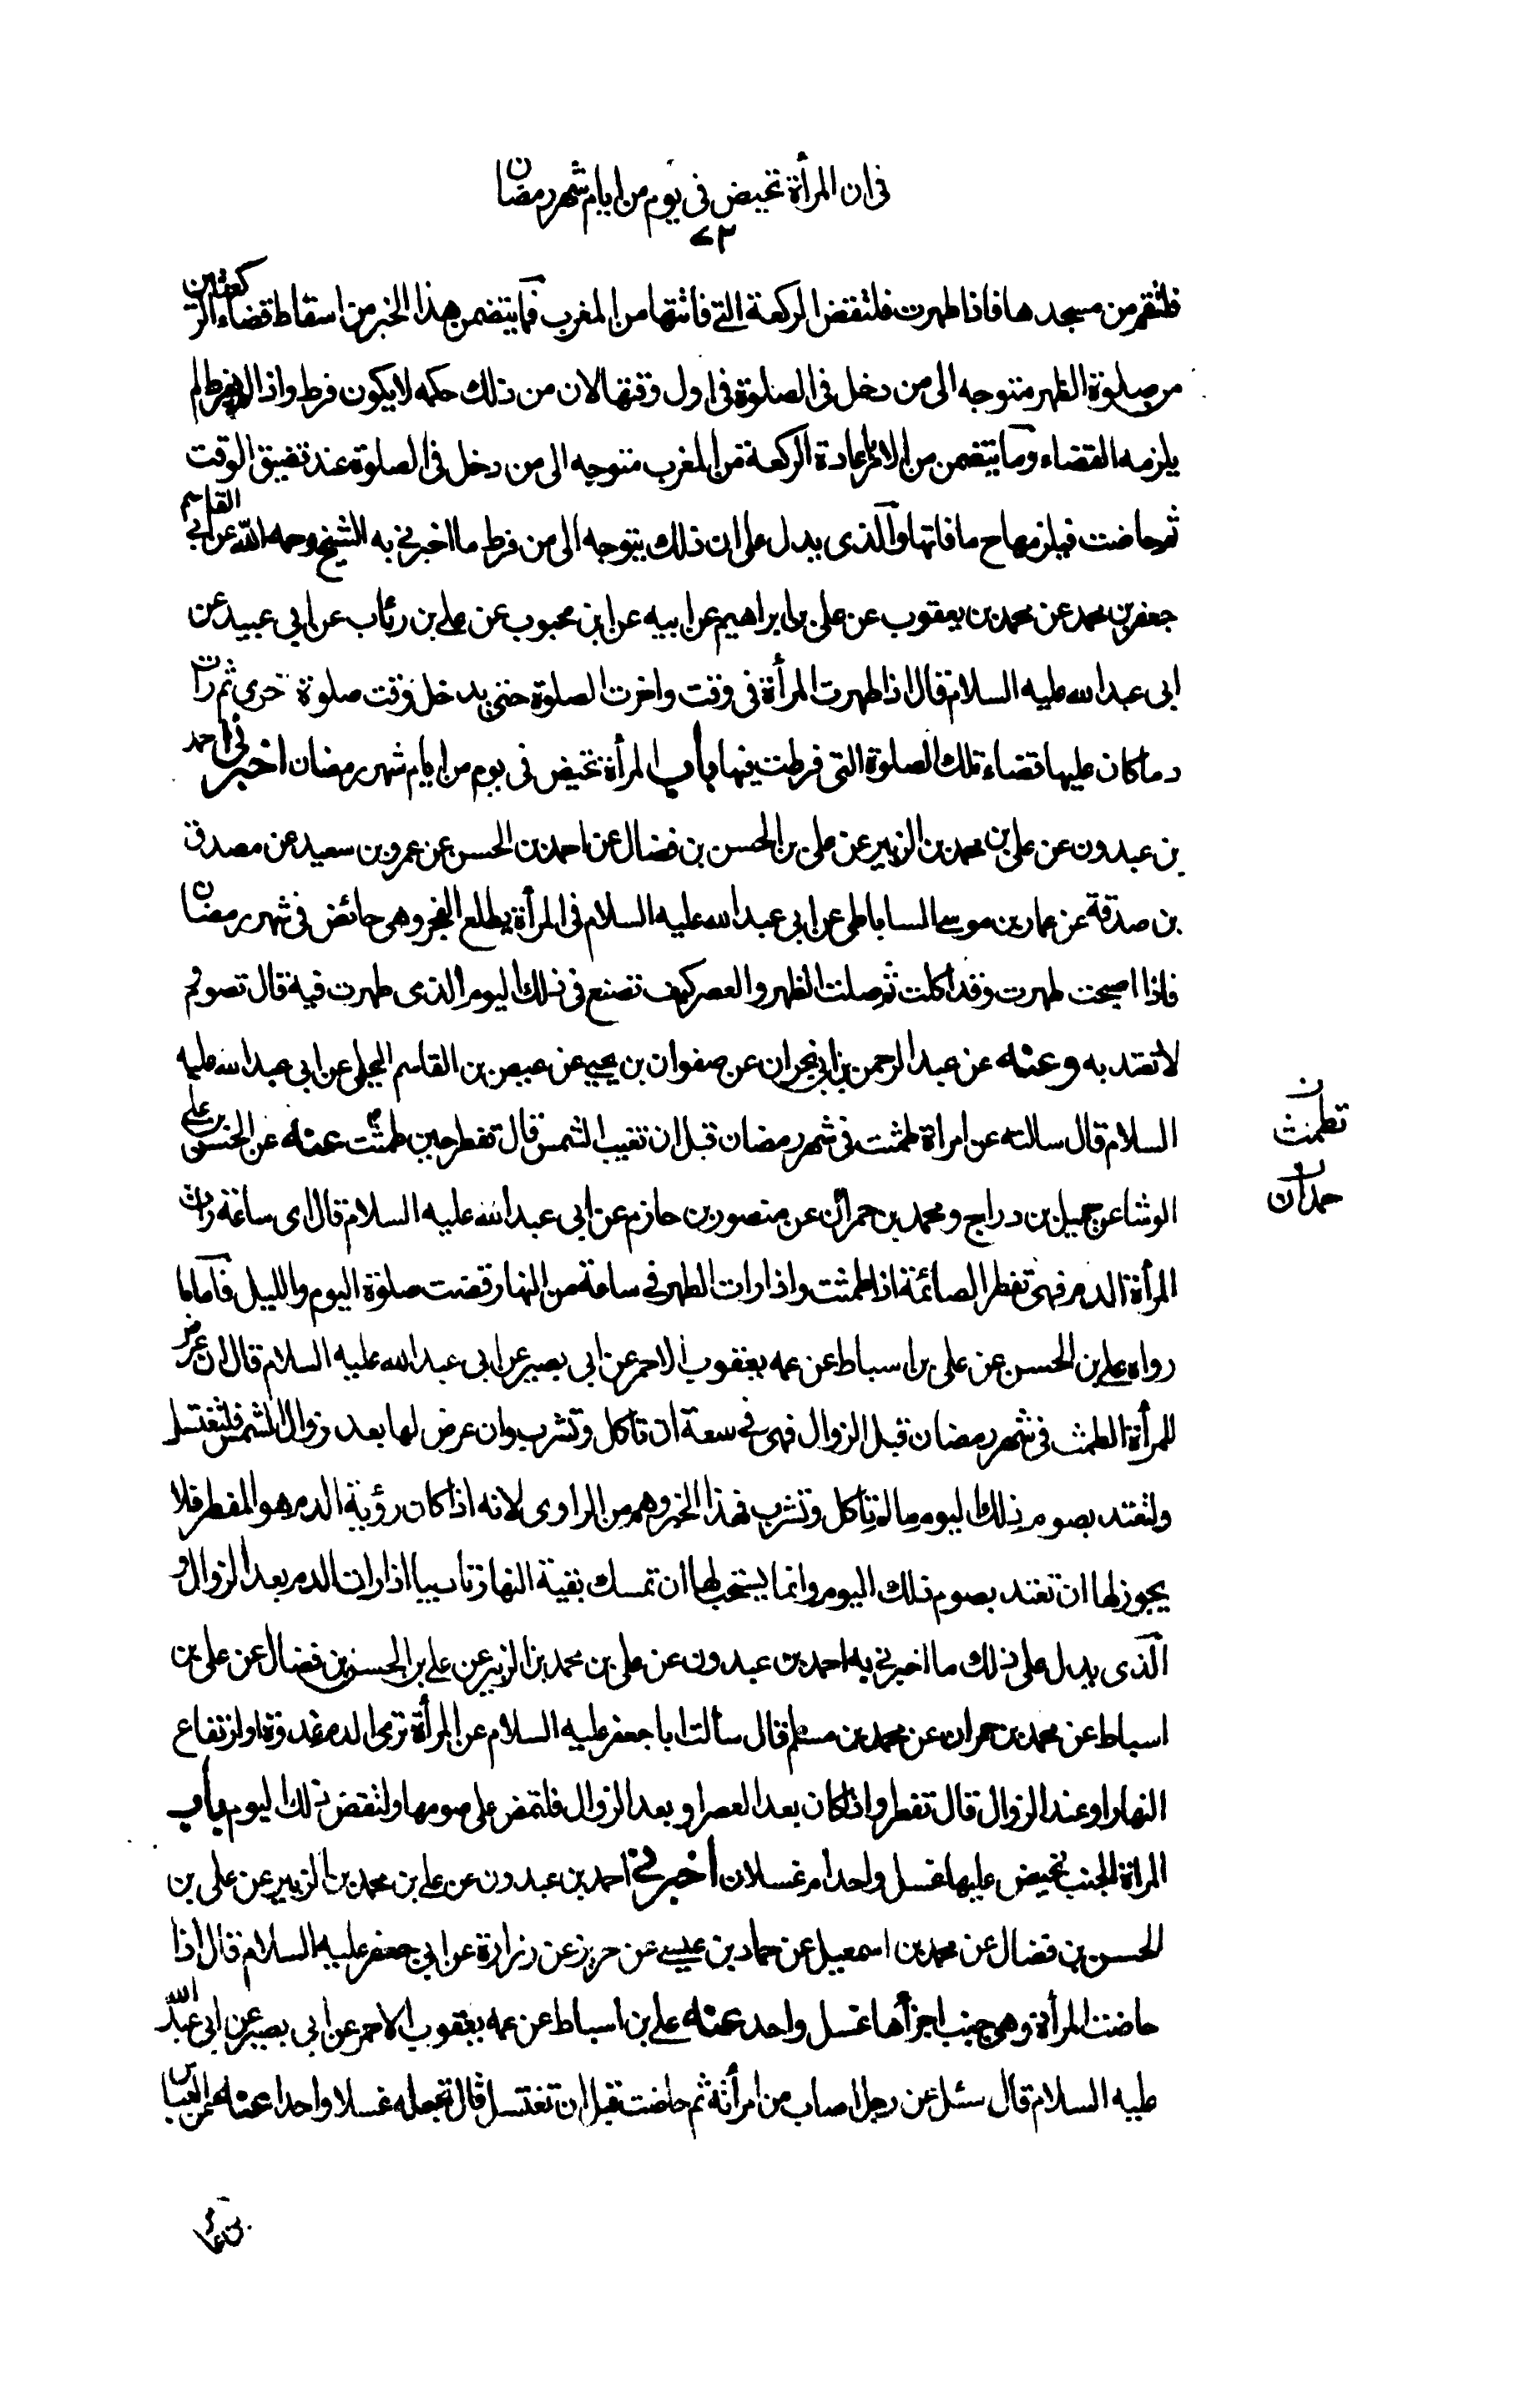 فى ان المرأة تحيض فى يوم من ايام شهر رمضان
٧٢
فلتقم من مسجدها فاذا طهرت فلتقض الركعة التى فاتتها من المغرب فما يتضمن هذا الخبر من اسقاط قضاء الركعتين
من صلوة الظهر متوجه الى من دخل فى الصلوة فى اول وقتها لان من ذلك حكمه لا يكون فرط واذا لم يفرط لم
يلزمه القضاء وما يتضمن من الامر باعادة الركعة من المغرب متوجه الى من دخل فى الصلوة عند تضيق الوقت
ثم حاضت فيلزمها ح ما فاتها والذى يدل على ان ذلك يتوجه الى من فرط ما اخبرنى به الشيخ رحمه الله عن ابى القاسم
جعفر بن محمد عن محمد بن يعقوب عن على بن ابراهيم عن ابيه عن ابن محبوب عن على بن رئاب عن ابى عبيد عن
ابى عبد الله عليه السلام قال اذا طهرت المرأة فى وقت واخرت الصلوة حتى يدخل وقت صلوة اخرى ثم رات
دما كان عليها قضاء تلك الصلوة التى فرطت فيها باب المرأة تحيض فى يوم من ايام شهر رمضان اخبرنى احمد
بن عبدون عن على بن محمد بن الزبير عن على بن الحسن بن فضال عن احمد بن الحسن عن عمرو بن سعيد عن مصدق
بن صدقة عن عمار بن موسى الساباطى عن ابى عبد الله عليه السلام فى المرأة يطلع الفجر وهى حائض فى شهر رمضان
فاذا اصبحت طهرت وقد اكلت ثم صلت الظهر والعصر كيف تصنع فى ذلك اليوم الذى طهرت فيه قال تصوم و
لا تعتد به وعنه عن عبد الرحمن بن ابى نجران عن صفوان بن يحيى عن عيص بن القاسم البجلى عن ابى عبد الله عليه
السلام قال سالته عن امراة طمثت فى شهر رمضان قبل ان تغيب الشمس قال تفطر حين طمثت عنه عن الحسن بن على
ن
تطمث
الوشا عن جميل بن دراج ومحمد بن حمران عن منصور بن حازم عن ابى عبد الله عليه السلام قال اى ساعة رات
ن
حمدان
المرأة الدم فهى تفطر الصائمة اذا طمثت واذا رات الطهر فى ساعة من النهار قضت صلوة اليوم والليل فاما ما
رواه على بن الحسن عن على بن اسباط عن عمه يعقوب الاحمر عن ابى بصير عن ابى عبد الله عليه السلام قال ان عرض
للمرأة الطمث فى شهر رمضان قبل الزوال فهى فى سعة ان تاكل وتشرب وان عرض لها بعد زوال الشمس فلتغتسل
ولتعتد بصوم ذلك اليوم ما لم تاكل وتشرب فهذا الخبر وهم من الراوى لانه اذا كان رؤية الدم هو المفطر فلا
يجوز لها ان تعتد بصوم ذلك اليوم وانما يستحب لها ان تمسك بقية النهار تاديبا اذا رات الدم بعد الزوال و
الذى يدل على ذلك ما اخبرنى به احمد بن عبدون عن على بن محمد بن الزبير عن على بن الحسن بن فضال عن على بن
اسباط عن محمد بن حمران عن محمد بن مسلم قال سألت ابا جعفر عليه السلام عن المرأة ترى الدم غدوة او ارتفاع
النهار او عند الزوال قال تفطر واذا كان بعد العصر او بعد الزوال فلتمض على صومها ولتقض ذلك اليوم باب
المرأة الجنب تحيض عليها غسل واحد ام غسلان اخبرنى احمد بن عبدون عن على بن محمد بن الزبير عن على بن
الحسن بن فضال عن محمد بن اسمعيل عن حماد بن عيسى عن حريز عن زرارة عن ابى جعفر عليه السلام قال اذا
حاضت المرأة وهى جنب اجزأها غسل واحد عنه على بن اسباط عن عمه يعقوب الاحمر عن ابى بصير عن ابى عبد الله
عليه السلام قال سئل عن رجل اصاب من امرأته ثم حاضت قبل ان تغتسل قال تجعله غسلا واحدا عنه عن العباس